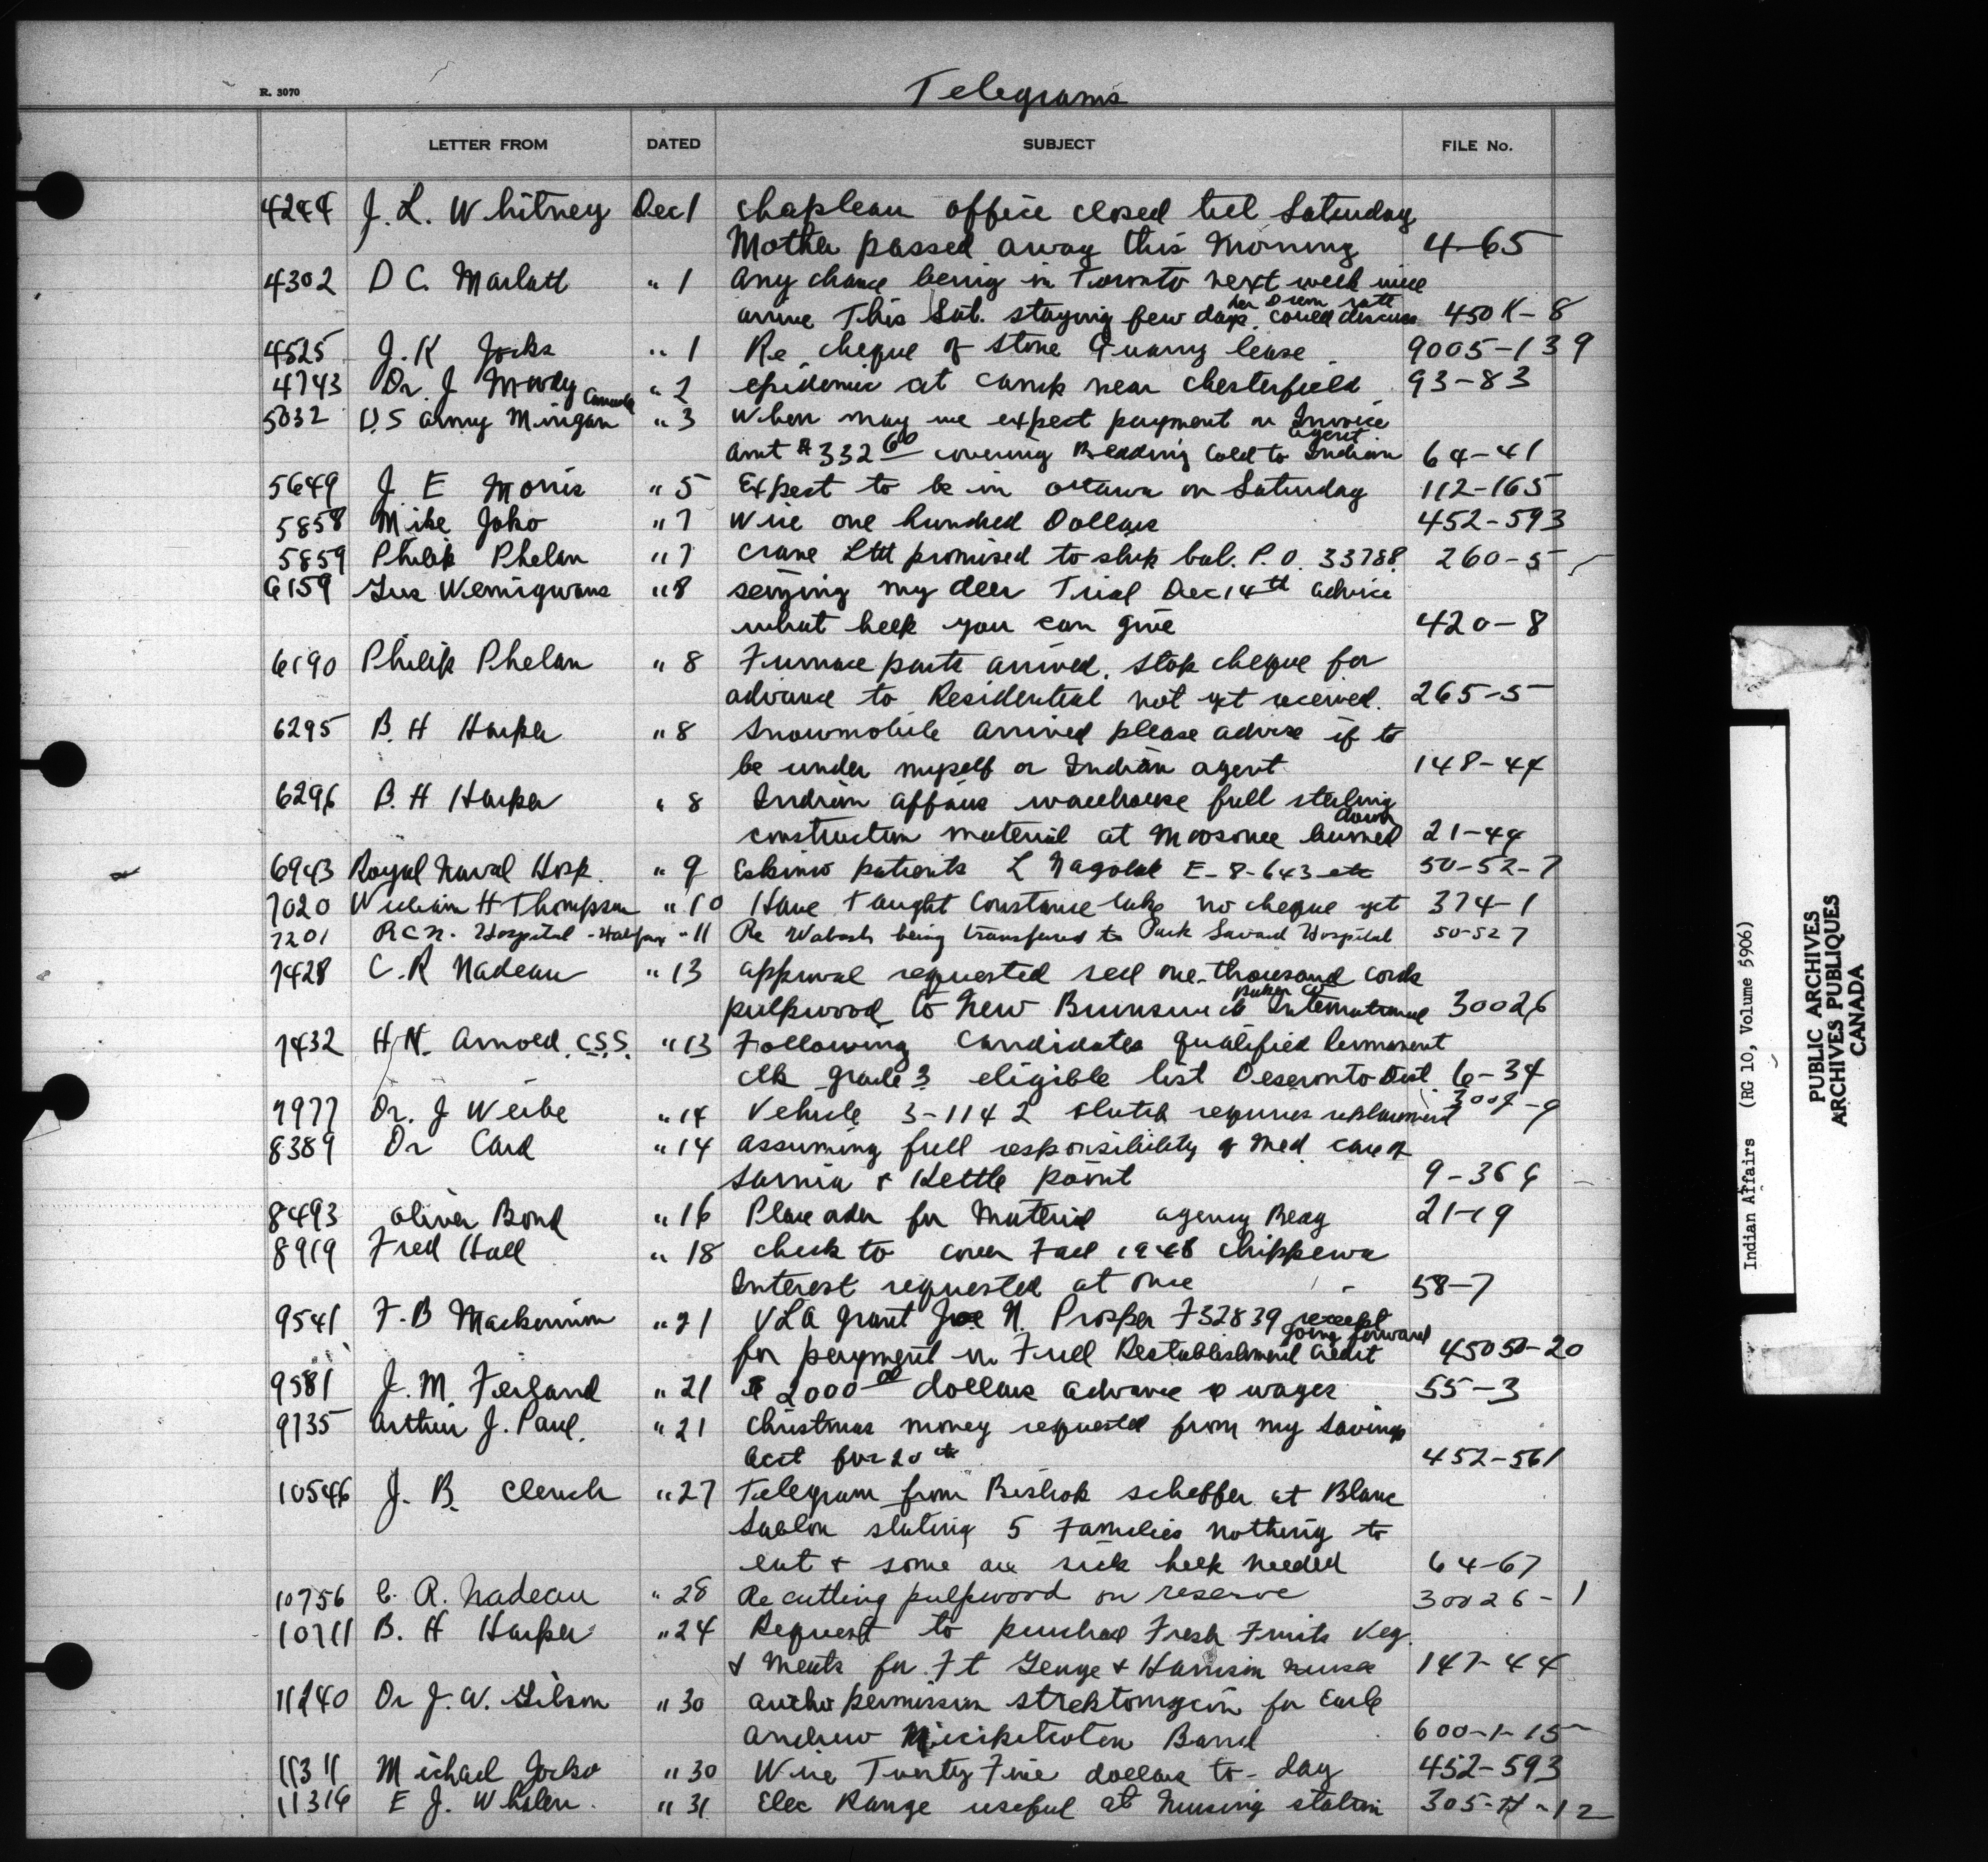 R. 3070
Telegrams
LETTER FROM DATED SUBJECT FILE No.
4244 J. L. Whitney Dec 1 Chapleau office closed till Saturday
Mother passed away this morning 4-65
4302 D C. Marlatt " 1 Any chance being in Toronto next week will
per Diem rate
arrive This Sat. staying few days. could discuss 450 K-8
4525 J. K Jocks " 1 Re cheque of Stone Quarry lease 9005-139
4743 Dr. J Moody " 2 epidemic at camp near Chesterfield 93-83
Canada
5032 U.S Army Mingan " 3 When may we expect payment on Invoice
agent
amt $332 60 covering Bedding sold to Indian 64-41
5649 J. E Morris " 5 Expect to be in Ottawa on Saturday 112-165
5858 Mike Joko " 7 Wire one hundred Dollars 452-593
5859 Philip Phelan " 7 Crane Ltd promised to ship bal. P.O. 33788 260-5
6159 Gus Wemigwans " 8 seizing my deer Trial Dec 14th advice
what help you can give 420-8
6190 Philip Phelan " 8 Furnace parts arrived. Stop cheque for
advance to Residential not yet received. 265-5
6295 B. H Harper " 8 Snowmobile arrived please advise if to
be under myself or Indian agent 148-44
6296 B. H Harper " 8 Indian Affairs warehouse full
down
construction material at Moosonee burned 21-44
6943 Royal Naval Hosp. " 9 Eskimo patients L Nagolak E-8-643 etc 50-52-7
7020 William H Thompson " 10 Have Taught Constance Lake no cheque yet 374-1
7201 R C N. Hospital - Halifax " 11 Re Wabash being transfered to Park Savard Hospital 50-52 7
7428 C. R Nadeau " 13 approval requested sell one thousand cords
paper Co
pulpwood to New Brunswick International 30026
7432 H. N. Arnold C.S.S. " 13 Following candidates qualified permanent
Clk grade 3 eligible list Deseronto Dist 6-34
7977 Dr. J Weibe " 14 Vehicle 3-1142 clutch requires replacement 3009-9
8389 Dr Card " 14 assuming full responsibility of Med care of
Sarnia & Kettle point 9-366
8493 Oliver Bond " 16 Place order for Material agency Bldg 21-19
8919 Fred Hall " 18 check to cover Fall 1948 Chippewa
Interest requested at once 58-7
9541 F. B Mackinnon " 21 VLA grant Joe N. Prosper F32839 receipt
going forward
for payment in Full Restablishment Credit 45050-20
9581 J. M. Ferland " 21 $ 2000 00 dollars advance wages 55-3
9735 Arthur J. Paul. " 21 Christmas money requested from my Savings
Acct for 20 452-561
10546 J. B. Clench " 27 Telegram from Bishop Scheffer at Blanc
Sablon stating 5 Families nothing to
eat & some are sick help needed 64-67
10756 C. R. Nadeau " 28 Re cutting pulpwood on reserve 30026-1
10711 B. H Harper " 24 Request to purchase Fresh Fruits Veg.
& Meats for Ft George & Harrison nurse 147-44
11240 Dr J. W. Gilson " 30 permission streptomycin for Earle
Andrew Micipitcoten Band 600-1-15
11311 Michael Jocko " 30 Wire Twenty Five dollars to-day 452-593
11316 E J. Whalen. " 31 Elec Range useful at Nursing station 305-H-12
Indian Affairs (RG 10, Volume 5906)
PUBLIC ARCHIVES
ARCHIVES PUBLIQUES
CANADA